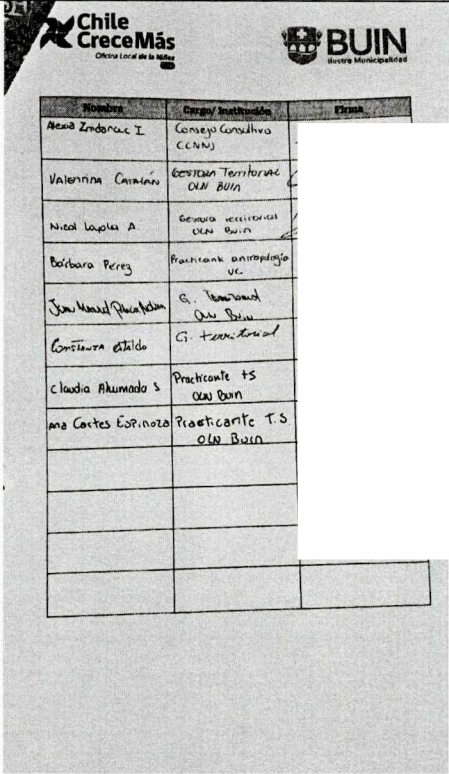 Chile
CreceMás
Oficina Local de la Niñez
BUIN
Ilustre Municipalidad
Nombre Cargo/Institución Firma
Alexia I Consejo Consultivo
CCNNJ
Valentina Catalán Gestora Territorial
OLN BUIN
Nicol A. Gestora territorial
OLN Buin
Bárbara Perez Practicante antropología
UC
Juan G. Territorial
OLN Buin
Constanza G. territorial
Claudia Ahumada S Practicante TS
OLN Buin
Ana Cortes Espinoza Practicante T.S
OLN Buin